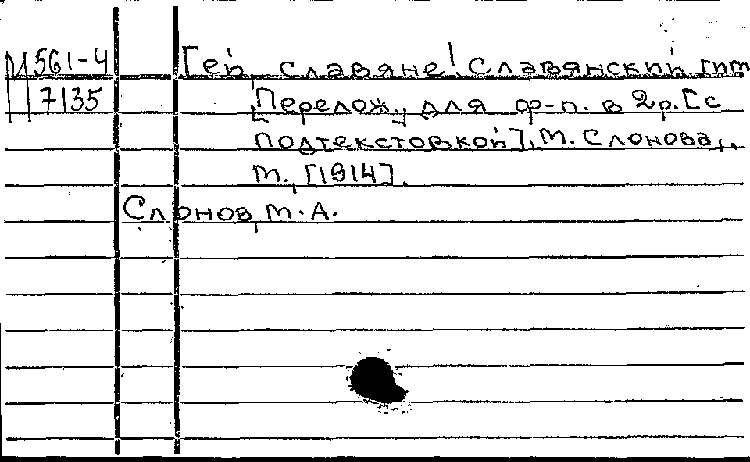 М 561-4 Гей, славяне! Славянский гимн
7135 [Перелож.] для ф-п. в 2р. [с
подтекстовкой], М. Слонова,
М., [1914].
Слонов, М.А.